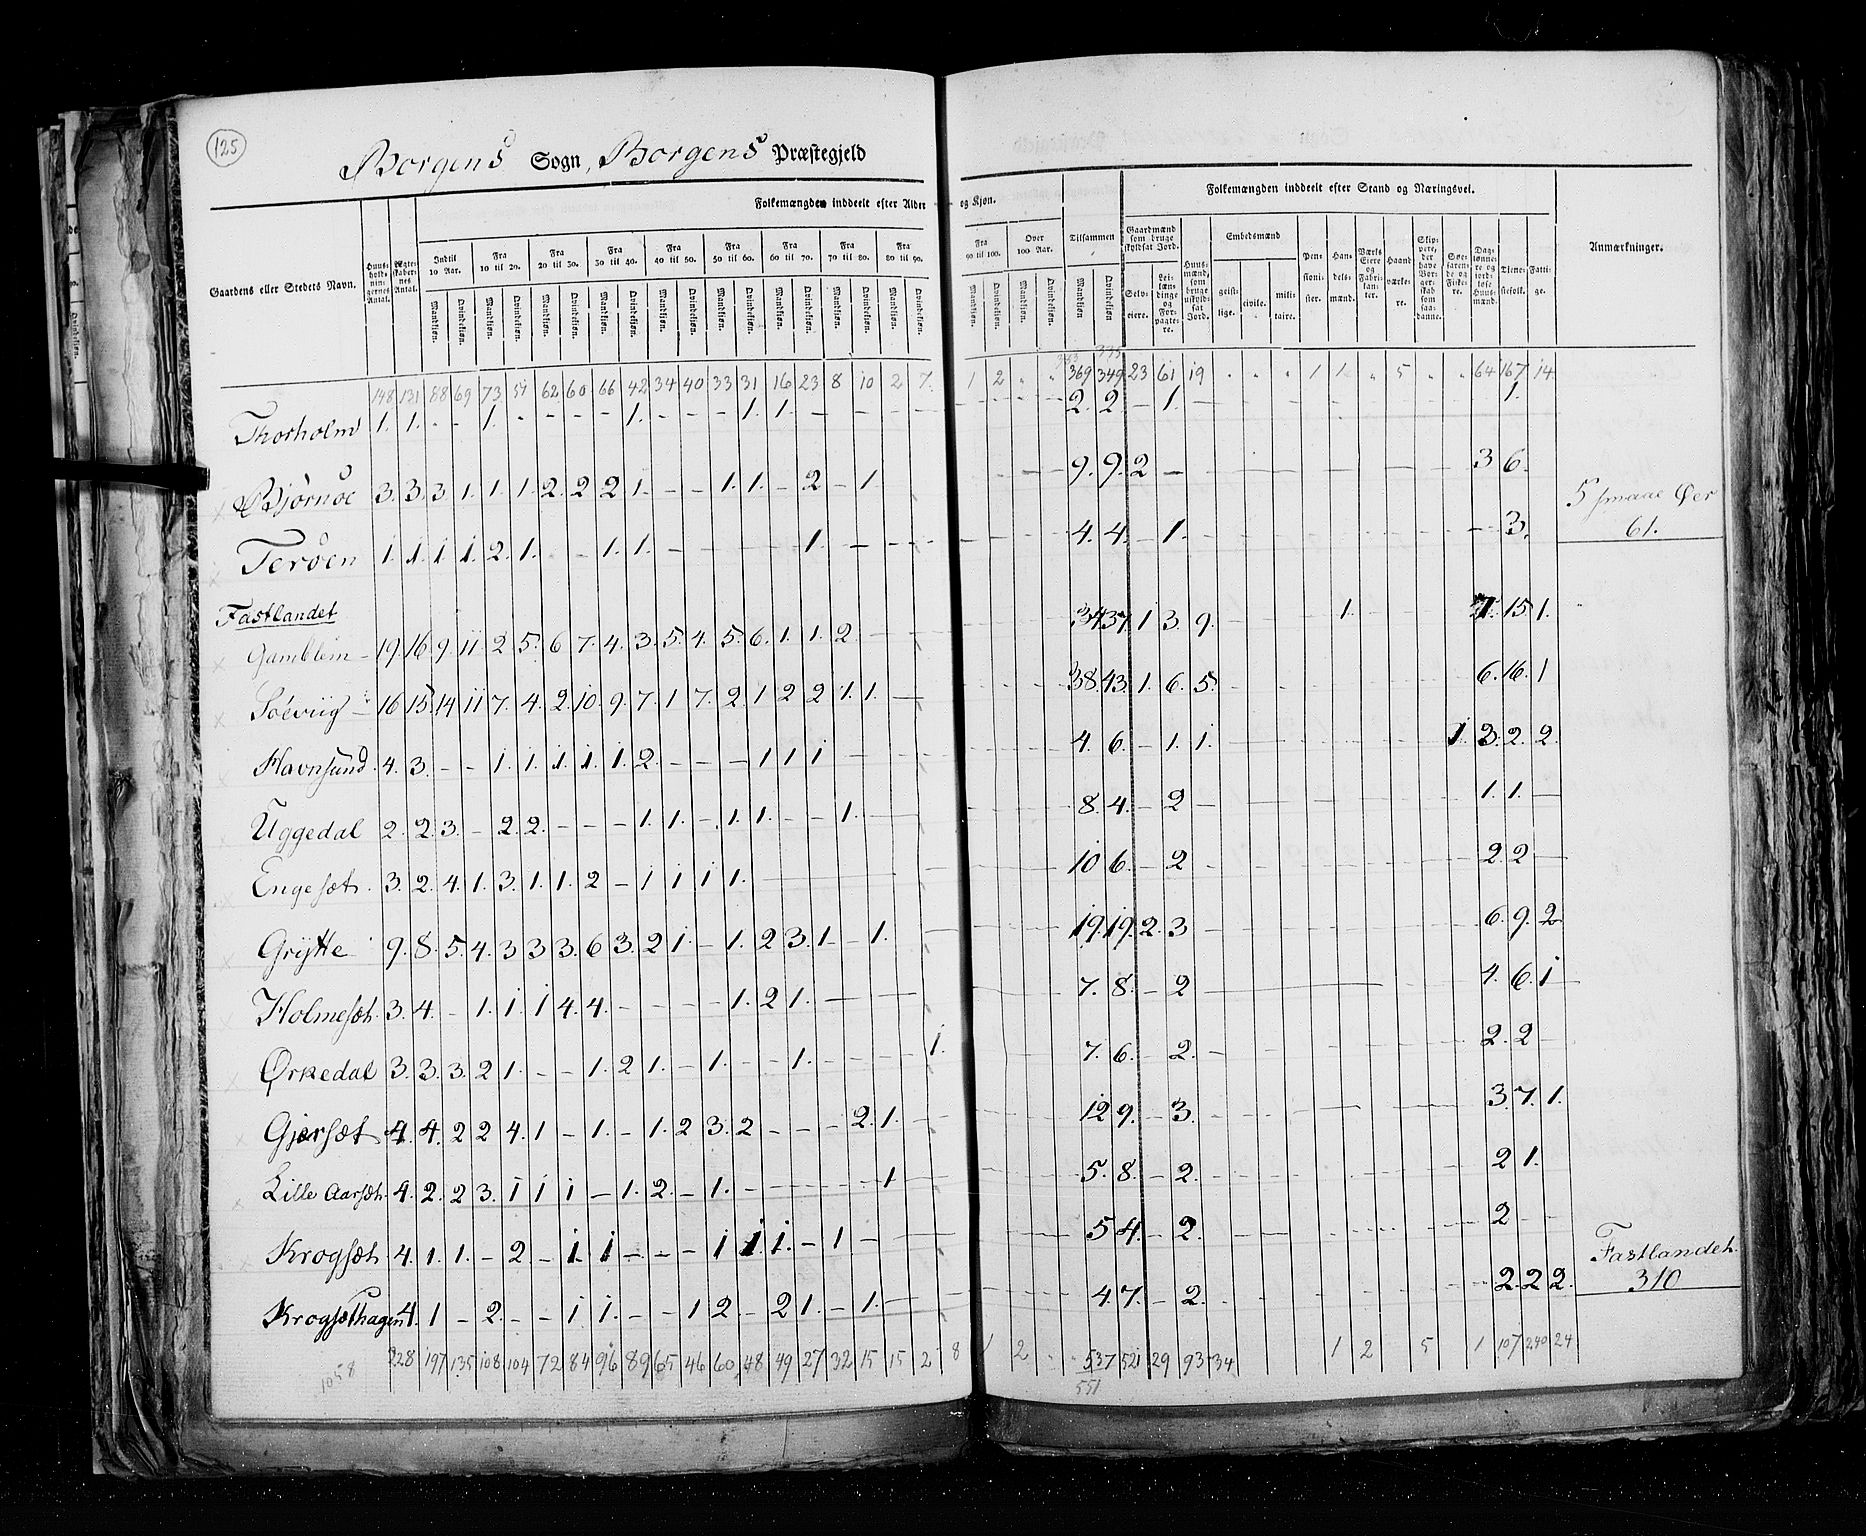 125
Borgens Sogn, Borgens Præstegjeld
Folkemængden inddeelt efter Alder og Kjøn.
Folkemængden inddeelt efter Stand og Næringsvei.
Gaardens eller Stedets Navn.
Indtil 10 Aar.
Fra 10 til 20.
Fra 20 til 30.
Fra 30 til 40.
Fra 40 til 50.
Fra 50 til 60.
Fra 60 til 70.
Fra 70 til 80.
Fra 80 til 90.
Fra 90 til 100.
Over 100 Aar.
Tilsammen
Gaardmænd som bruge skyldsat Jord.
Embedsmænd
Anmærkninger.
Mandkjøn. Qvindekjøn.
148 131 88 69 73 54 62 60 66 42 34 40 33 31 16 23 8 10 2 7 1 2 " " 369 349 23 61 19 " " " " 1 1 " 5 " " 64 167 14
Thorholm 1. 1. - - 1. - - - - 1. - - - 1. 1. - - - - 2. 2. - 1. - 1.
Bjørnøe 3. 3. 3. 1. 1. 1. 2. 2. 2. 1. - - 1. 1. - 2. - 1. 9. 9. 2 - 3 6.
5 smaae Øer
61.
Terøen 1. 1. 1. 1. 2. 1. - - 1. 1. - - - - - 1. - - 4. 4. - 1. - 3.
Fastlandet
Gamblem 19 16 9. 11 2 5. 6 7. 4. 3. 5. 4. 5. 6. 1. 1. 2. 34 37. 1 3. 9. 1. 7. 15 1.
Søeviig 16 15. 14 11 7. 4. 2. 10. 9. 7. 1 7. 2. 1 2 2. 1. 1. - 38. 43. 1. 6. 5. 6. 16. 1
Havnsund. 4. 3. - - 1. 1. 1. 1. 1. 2. - - - 1 1 1 - - 4. 6. - 1. 1. 1 3. 2. 2.
Uggedal 2. 2. 3. - 2. 2. - - - 1. 1. - 1. 1. - - 1. - 8. 4. - 2 - 1. 1. -
Engesæt. 3. 2. 4. 1. 3. 1. 1. 2 - 1 1 1 1. 10 6. - 2 2. 2 -
Grytte 9. 8. 5. 4. 3 3 3. 6 3. 2 1. - 1. 2 3. 1. - 1. 19. 19. 2. 3 6. 9. 2
Holmesæt. 3. 4. - 1. 1. 1 4. 4. - - - - 1. 2 1. - - 7. 8. - 2 4. 6. 1
Ørkedal 3. 3. 3. 2 1. - - 1. 2 1. - 1. - - 1. - - - - 1. 7. 6. - 2. - 2. 2
Gjærsæt 4. 4. 2 2 4. 1 - 1. - 1. 2 3. 2 - - - 2. 1. - 12 9. - 3. 3. 7. 1.
Lille Aarsæt. 4. 2. 2 3. 1 1 1 - 1. 2. - 1. - - - - - 1 5. 8. - 2. 2 1.
Krogsæt 4. 1 1. - 2 - 1. 1 - - - 1 1. 1. - 1 - 5 4. - 2. 2 - -
Fastlandet.
310
Krogsæthagen 4. 1 - 2. - - 1 1. - - 1 2 - 2 1. - 1. 4. 7. - 2. 2. 2. 2.
228 197 135 108 104 72 84 96 89 65 46 60 48 49 27 32 15 15 2 8 1 2 537 521 29 93 34 1 2 5 1 107 240 24
1058
551